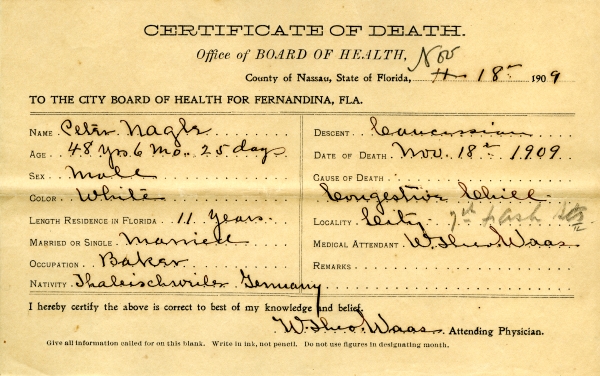 CERTIFICATE OF DEATH.
Office of BOARD OF HEALTH,
County of Nassau, State of Florida, Nov 18th 1909
TO THE CITY BOARD OF HEALTH FOR FERNANDINA, FLA.
NAME Peter Nagle
AGE 48 Yrs 6 Mo. 25 days
SEX Male
COLOR White
LENGTH RESIDENCE IN FLORIDA 11 Years
MARRIED OR SINGLE Married
OCCUPATION Baker
NATIVITY Thaleischweiler Germany
DESCENT Caucassian
DATE OF DEATH Nov. 18th 1909
CAUSE OF DEATH
Congestive Chill
LOCALITY City 7th &ash Sts
MEDICAL ATTENDANT W. Theo Waas
REMARKS
I hereby certify the above is correct to best of my knowledge and belief.
W. Theo. Waas Attending Physician.
Give all information called for on this blank. Write in ink, not pencil. Do not use figures in designating month.